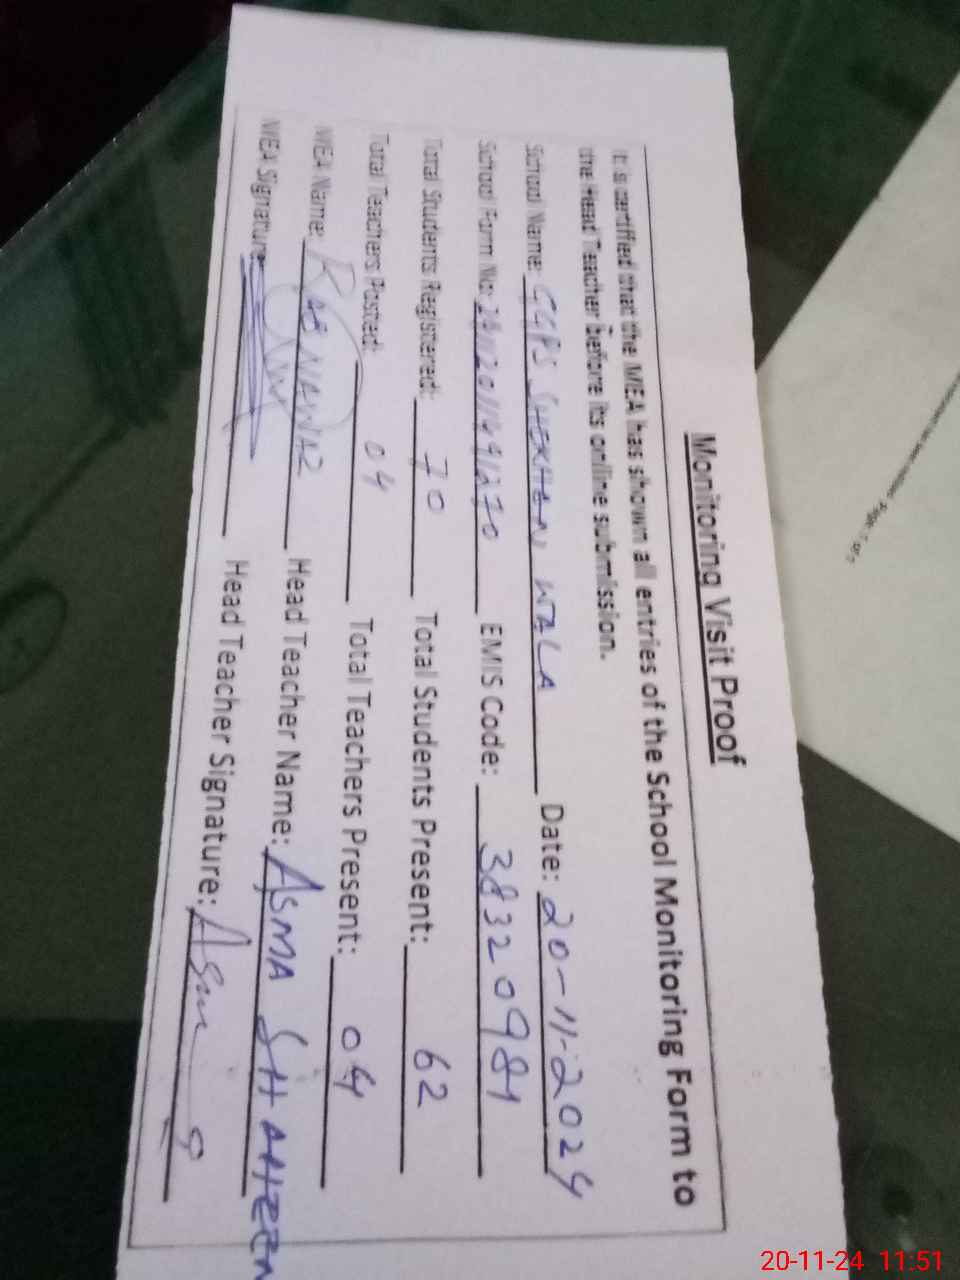 Monitoring Visit Proof
It is certified that the MEA has shown all entries of the School Monitoring Form to
the Head Teacher before its online submission.
School Name: GGPS SHEKHAN WALA Date: 20-11-2024
School Form No: EMIS Code: 38320981
Total Students Registered: 70 Total Students Present: 62
Total Teachers Posted: 04 Total Teachers Present: 04
MEA Name: RAB NAWAZ Head Teacher Name: ASMA SHAHEEN
MEA Signature: Head Teacher Signature: Asma
20-11-24 11:51